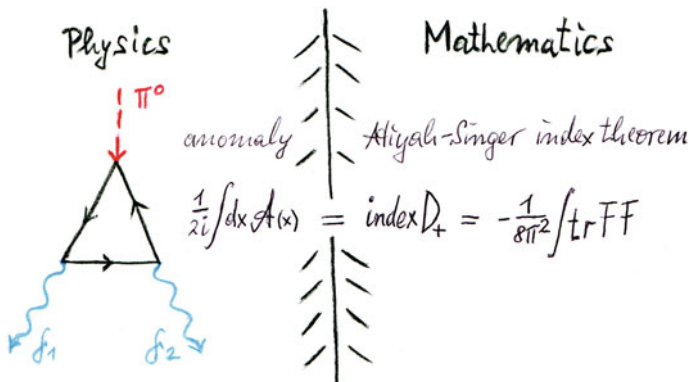 Physics
Mathematics
π⁰
anomaly
Atiyah-Singer index theorem
1/2i ∫dx A(x) = index D₊ = -1/8π² ∫tr FF
γ₁
γ₂